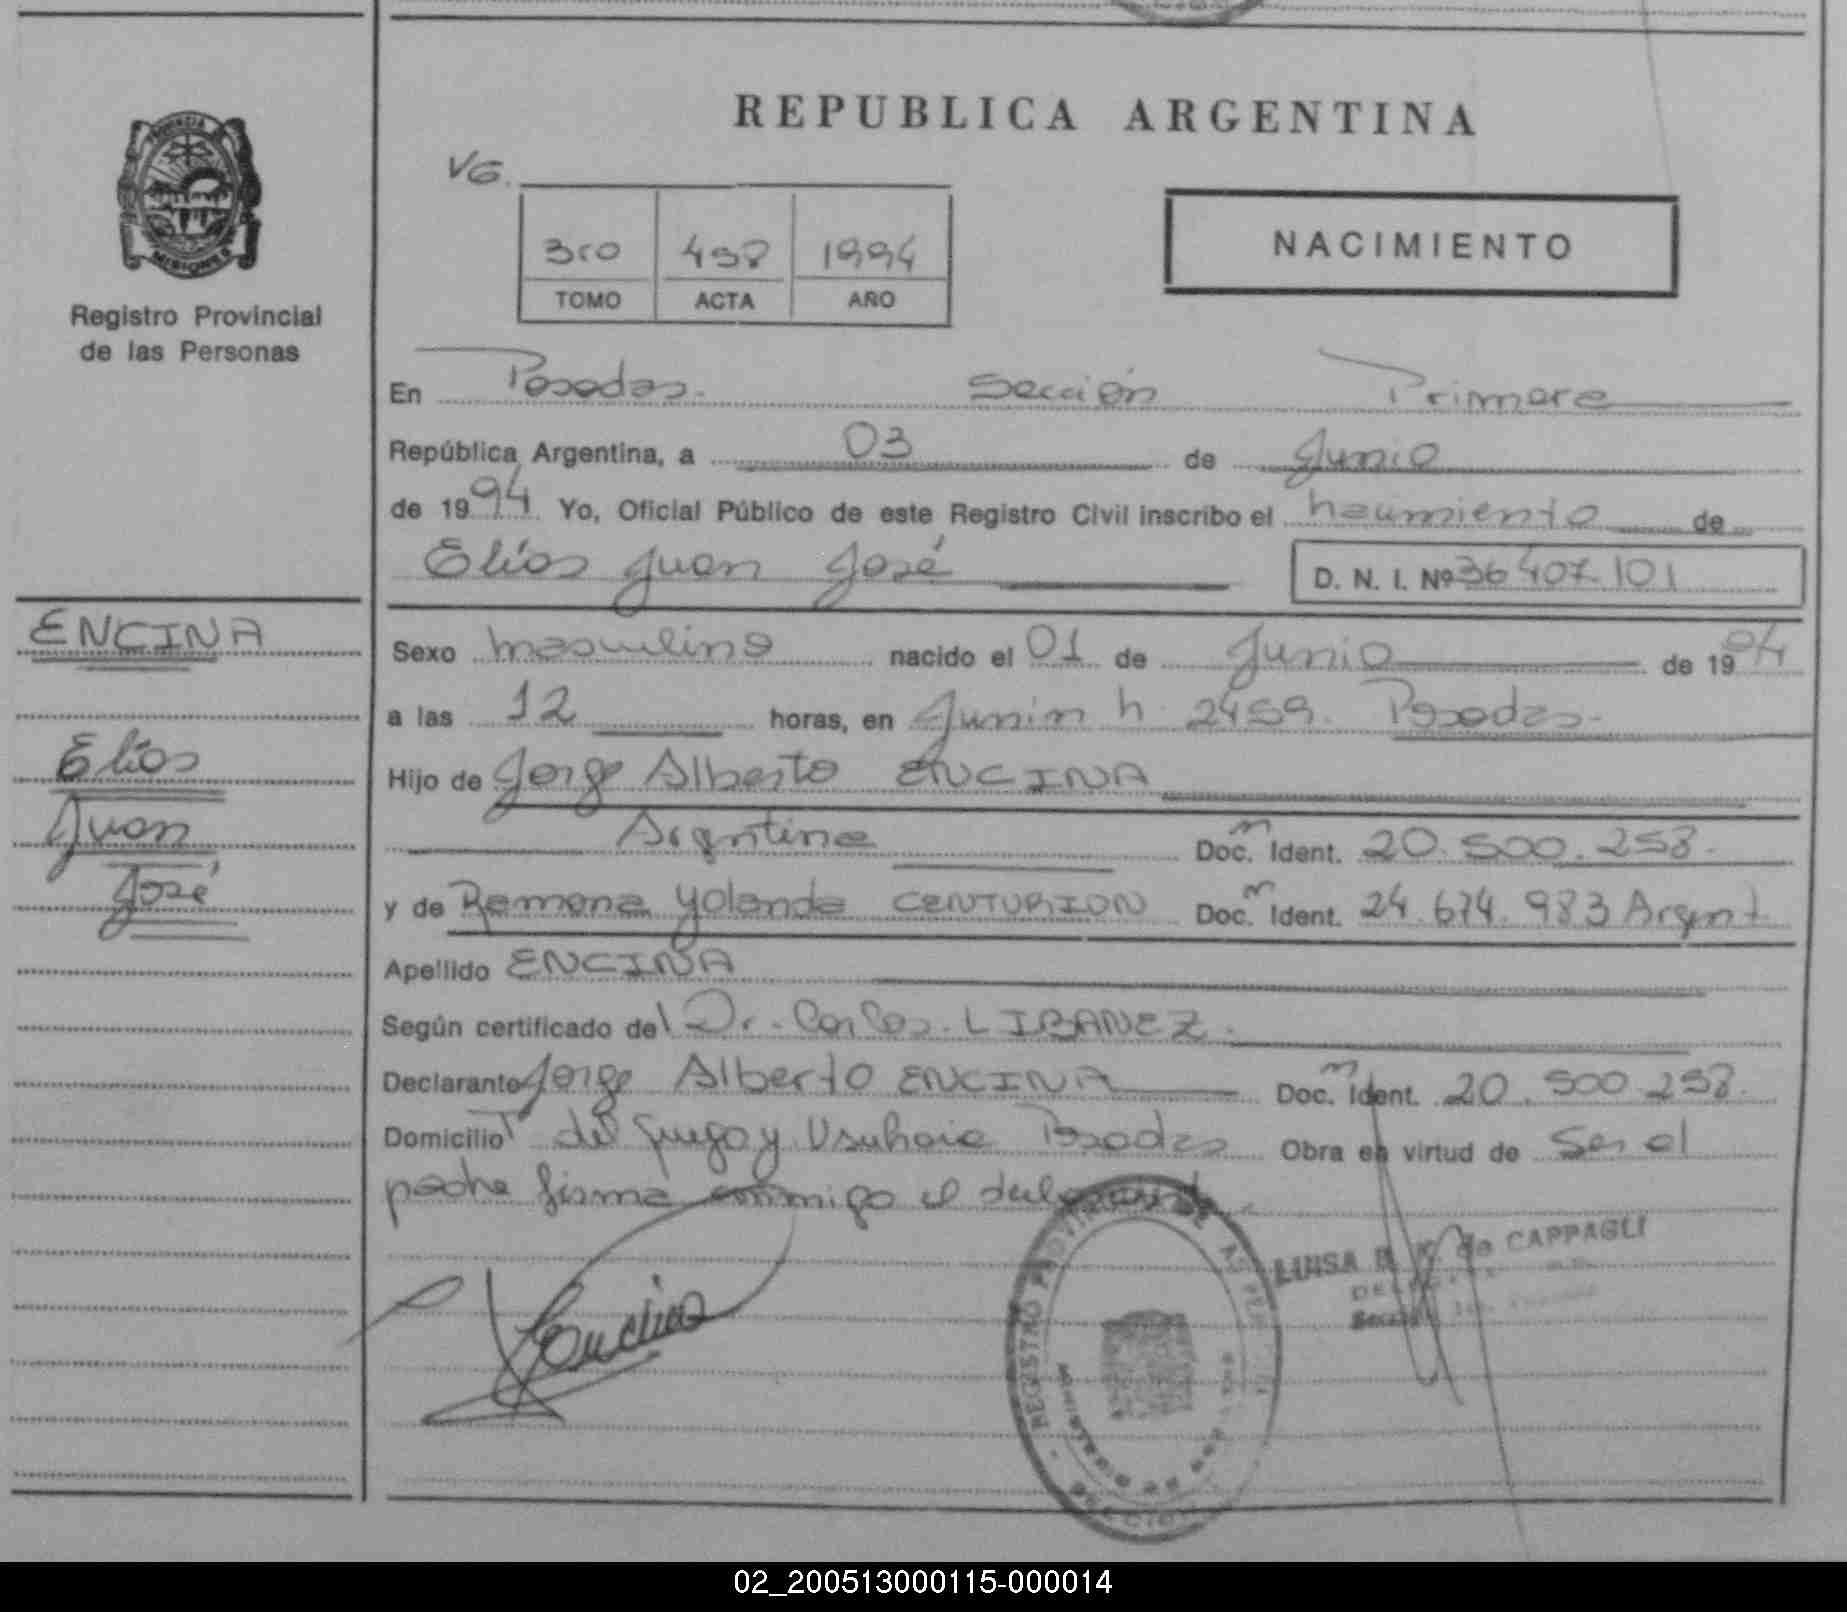 REPUBLICA ARGENTINA
VG.
3ro 498 1994
TOMO ACTA AÑO
NACIMIENTO
PROVINCIA DE
MISIONES
Registro Provincial
de las Personas
En Posadas. Sección Primera
República Argentina, a 03 de Junio
de 1994 Yo, Oficial Público de este Registro Civil inscribo el nacimiento de
Elías Juan José
D. N. I. Nº 36 407.101
ENCINA
Elías
Juan
José
Sexo masculino nacido el 01 de Junio de 1994
a las 12 horas, en Junin n 2459. Posadas.
Hijo de Jorge Alberto ENCINA
Argentina Doc. m Ident. 20.500.258.
y de Ramona Yolanda CENTURION Doc. m Ident. 24.674.983 Argent
Apellido ENCINA
Según certificado del Dr. Carlos. LIBANEZ.
Declarante Jorge Alberto ENCINA Doc. m Ident. 20.500.258.
Domicilio T del fuego y Usuhaia Posadas Obra en virtud de Ser el
padre firma conmigo el declarante
Encina
REGISTRO PROVINCIAL DE
LUISA B. de CAPPAGLI
02_200513000115-000014